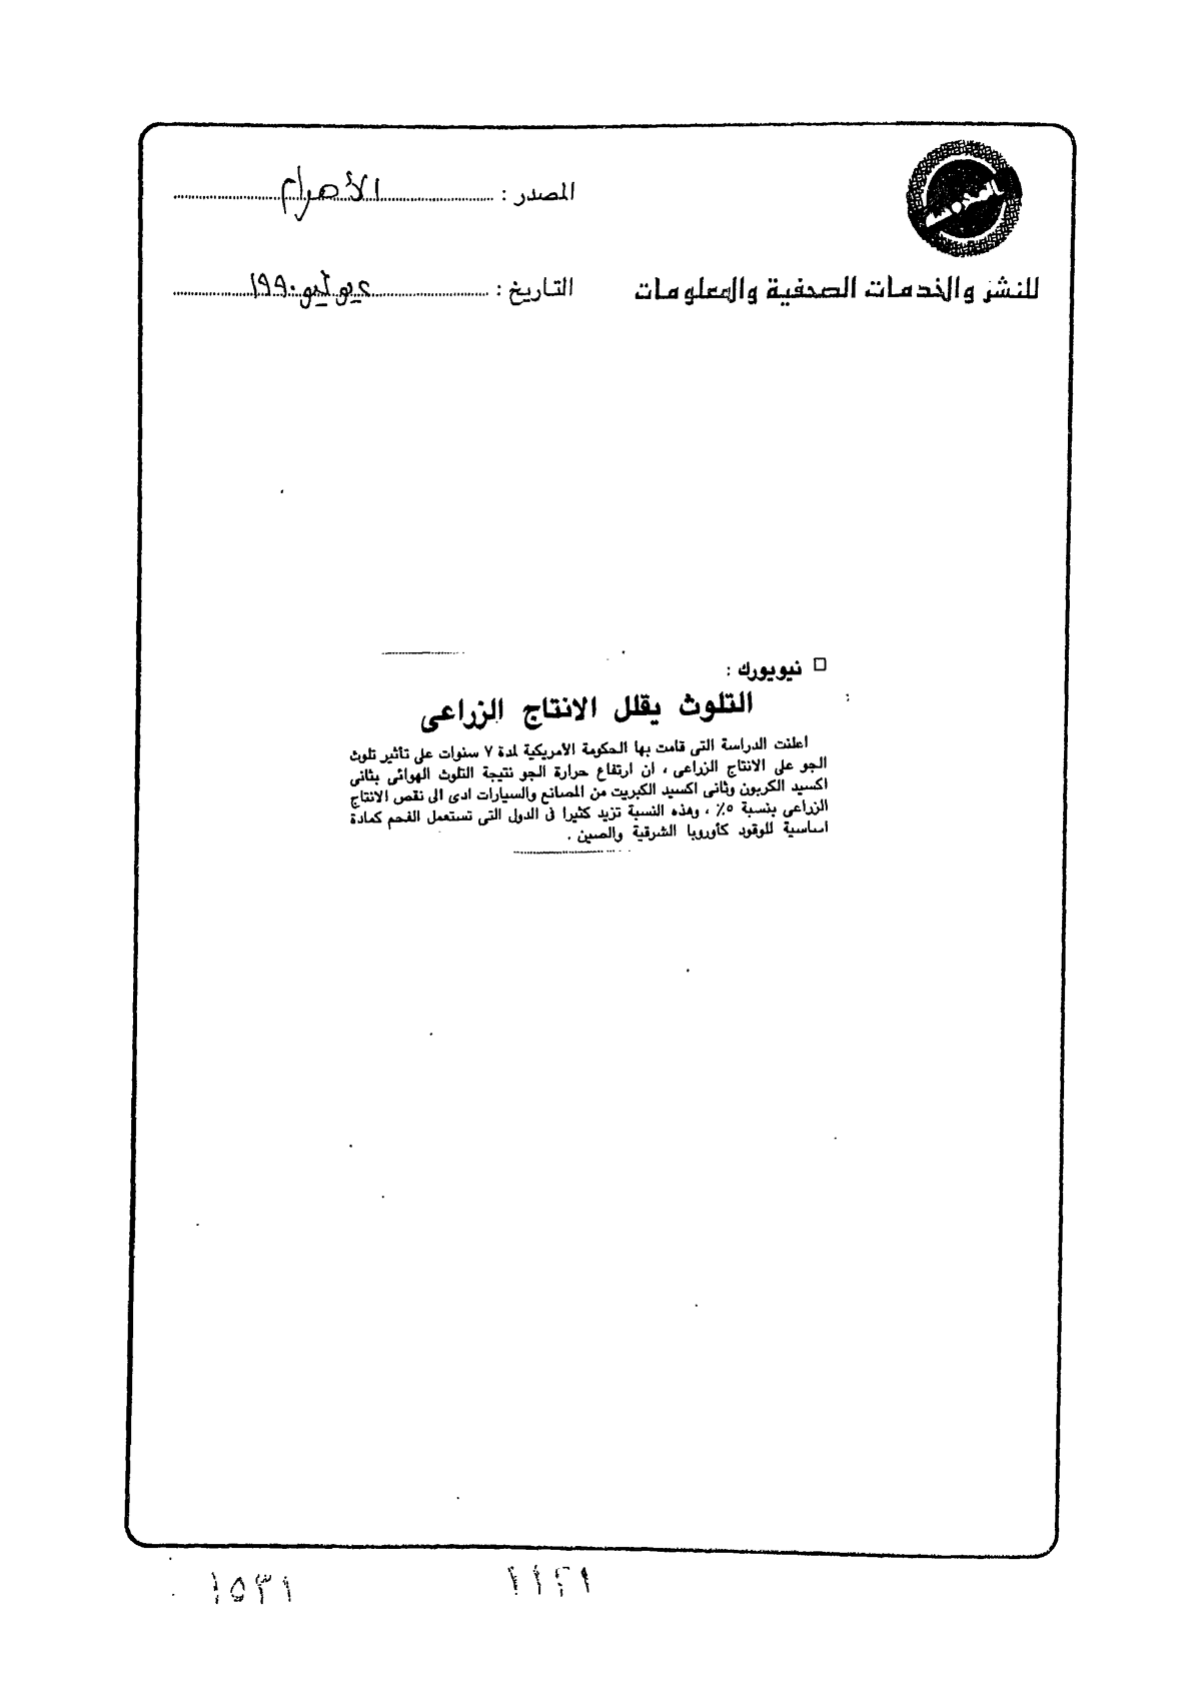 المصدر : الأهرام
للنشر والخدمات الصحفية والمعلومات
التاريخ : ٤ يوليو ١٩٩٠
□ نيويورك :
التلوث يقلل الانتاج الزراعى
اعلنت الدراسة التى قامت بها الحكومة الأمريكية لمدة ٧ سنوات على تأثير تلوث
الجو على الانتاج الزراعى ، ان ارتفاع حرارة الجو نتيجة التلوث الهوائى بثانى
اكسيد الكربون وثانى اكسيد الكبريت من المصانع والسيارات ادى الى نقص الانتاج
الزراعى بنسبة ٥٪ ، وهذه النسبة تزيد كثيرا فى الدول التى تستعمل الفحم كمادة
اساسية للوقود كأوروبا الشرقية والصين .